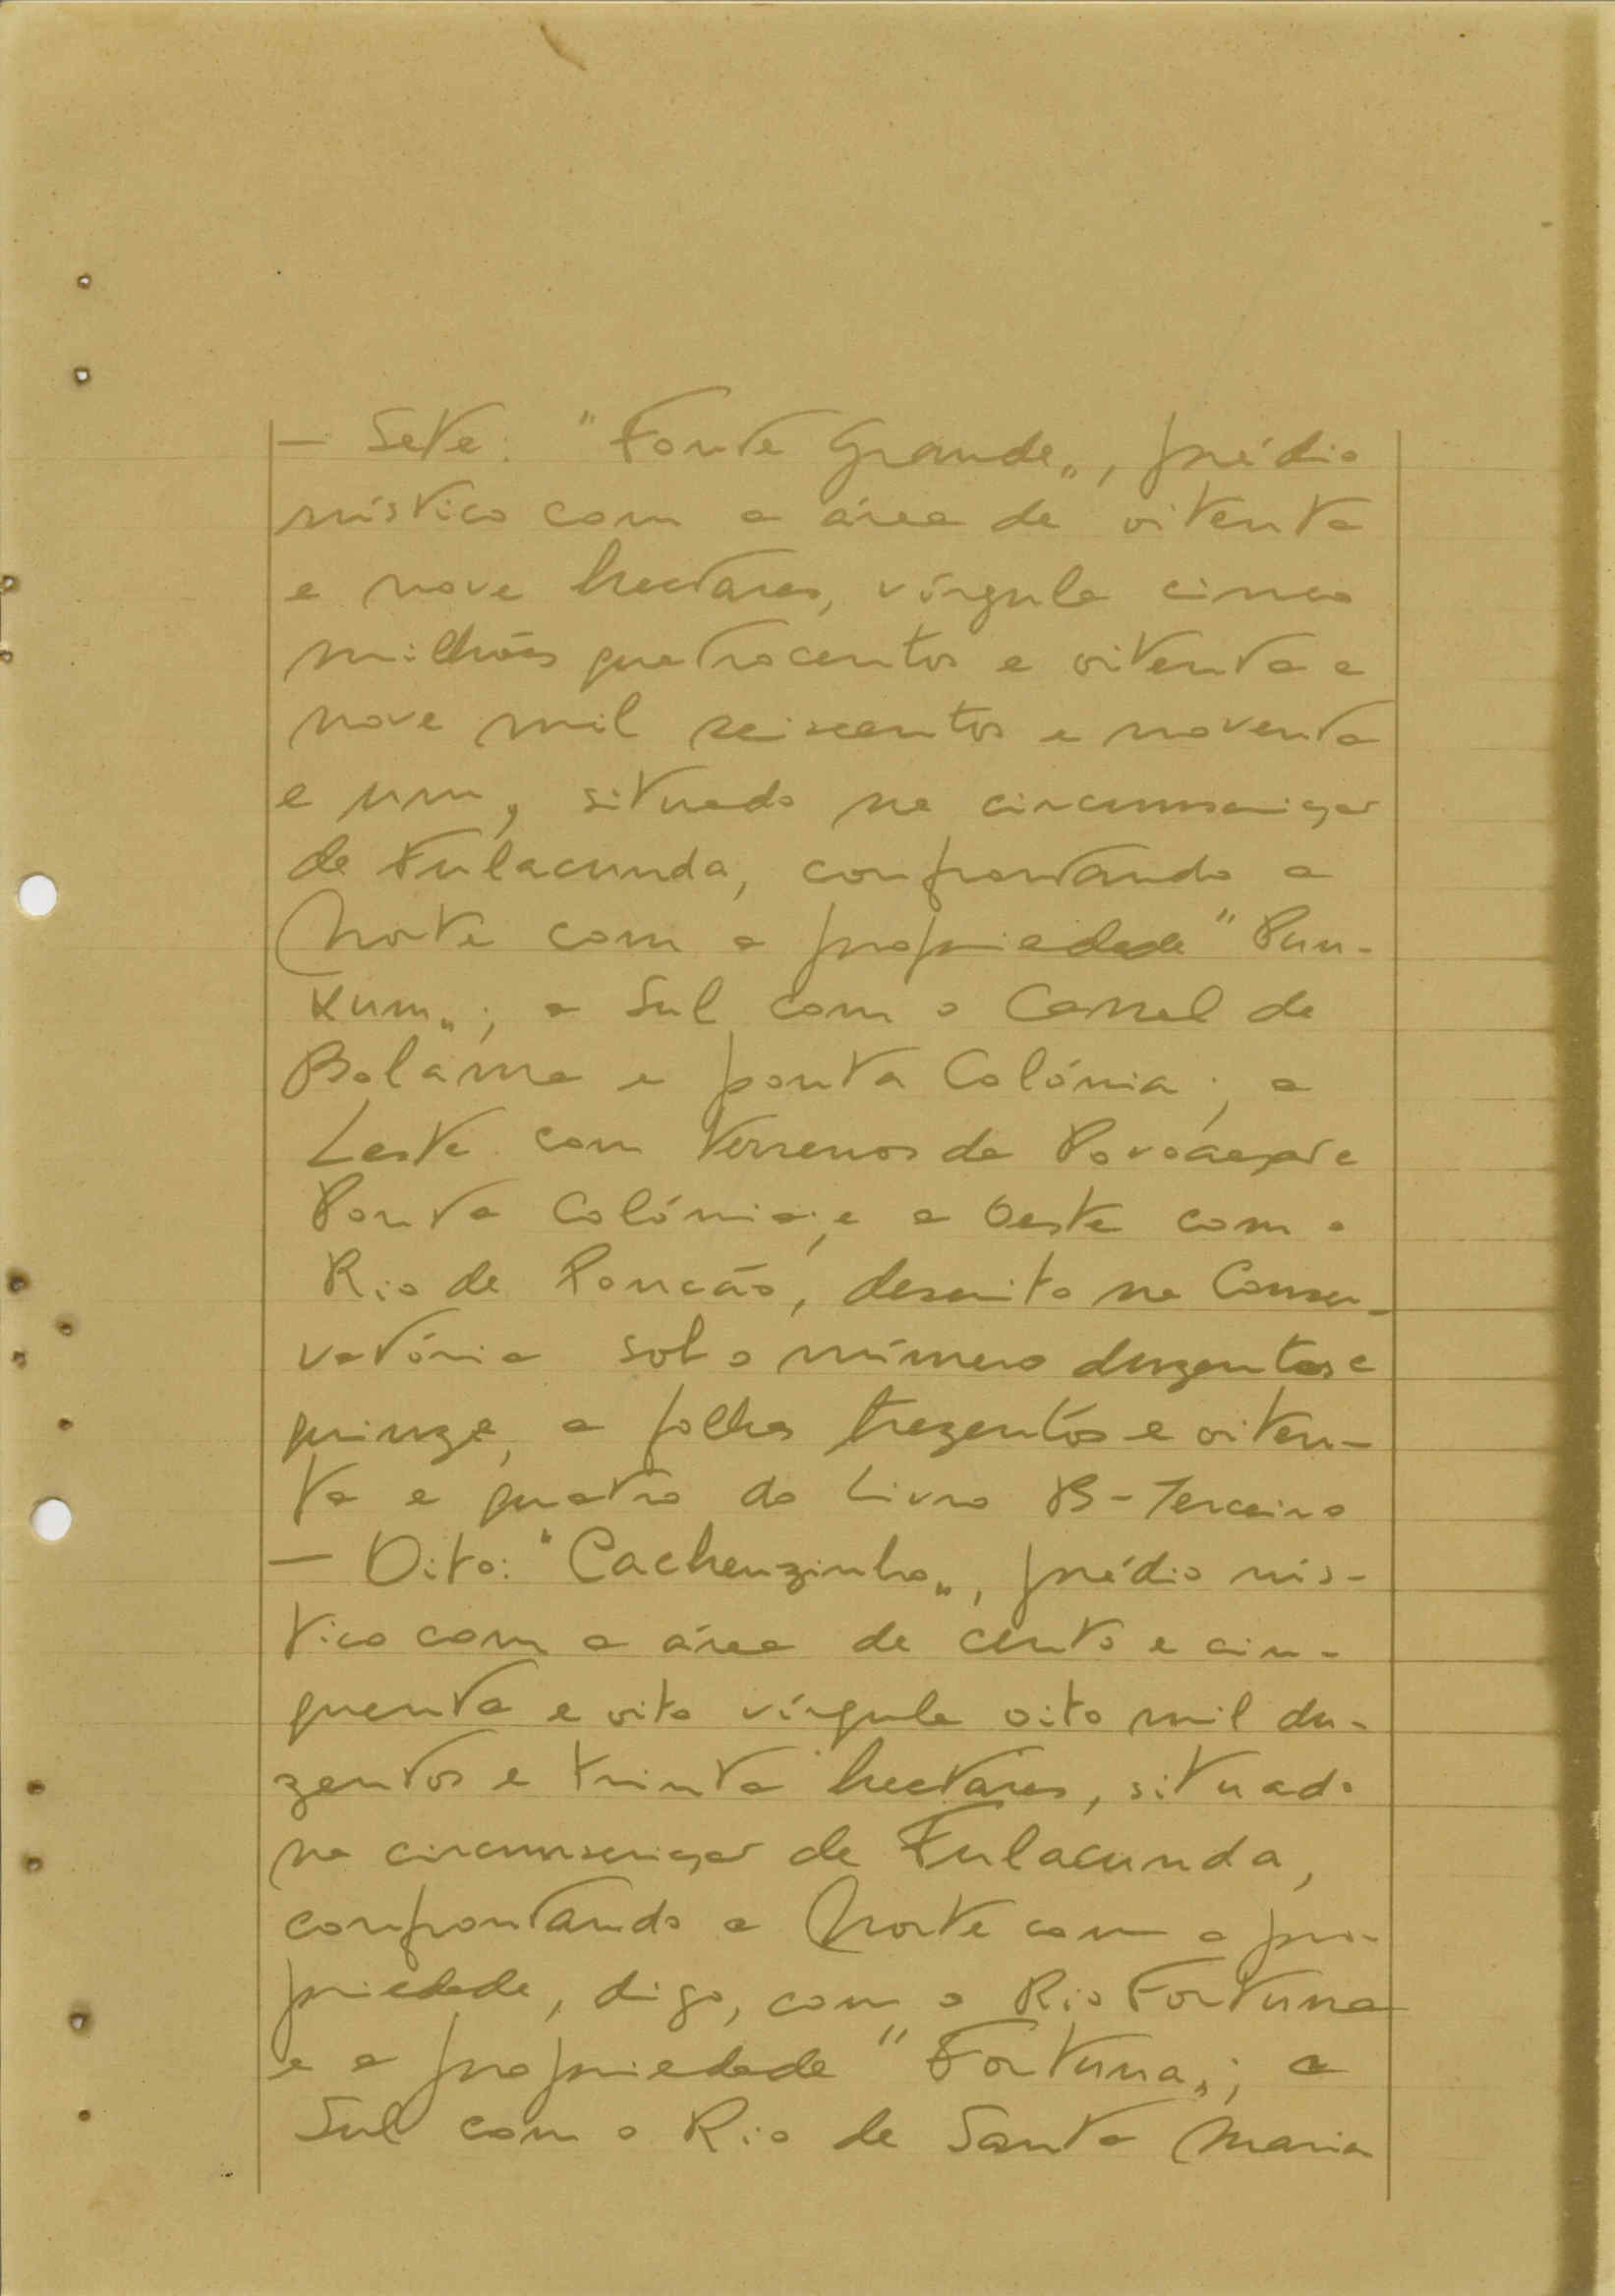 — Sete: "Fonte Grande„, prédio
rústico com a área de oitenta
e nove hectares, vírgula cinco
milhões quatrocentos e oitenta e
nove mil seiscentos e noventa
e um, situado na circunscrição
de Fulacunda, confrontando a
Norte com a propriedade "Pun-
kum„; a Sul com o Canal de
Bolama e ponta Colónia; a
Leste com terrenos da Povoação e
Ponta Colónia; e a Oeste com o
Rio de Poncão, descrito na Conser-
vatória sob o número duzentos e
quinze, a folhas trezentos e oiten-
ta e quatro do Livro B-Terceiro
— Oito: "Cacheuzinho„, prédio rús-
tico com a área de cento e cin-
quenta e oito vírgula oito mil du-
zentos e trinta hectares, situado
na circunscrição de Fulacunda,
confrontando a Norte com a pro-
priedade, digo, com o Rio Fortuna
e a propriedade "Fortuna„; a
Sul com o Rio de Santa Maria